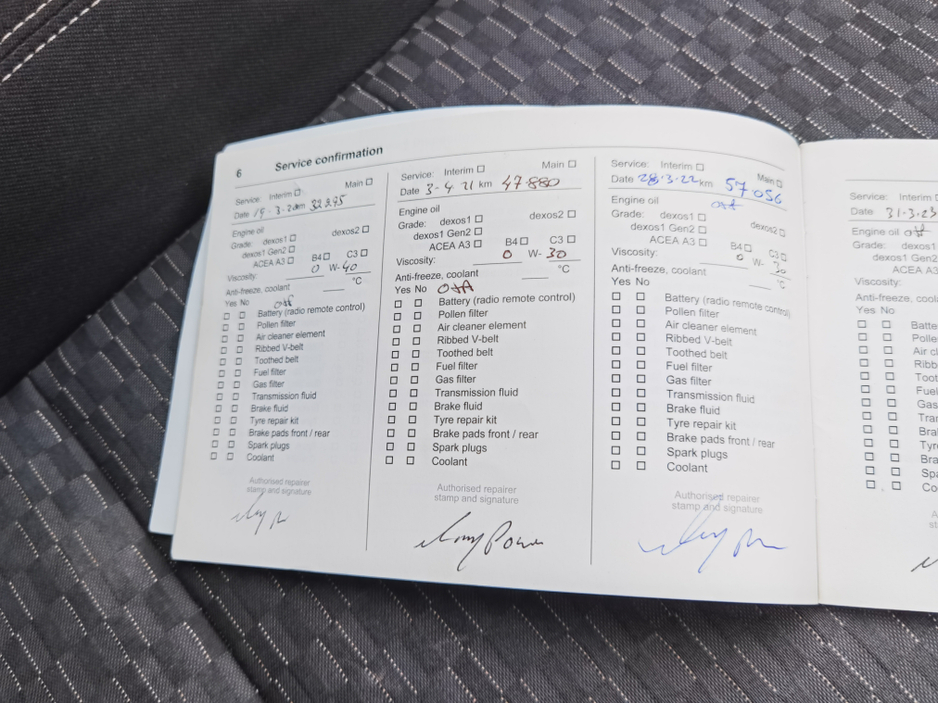 6 Service confirmation
Service: Interim Main
Date 19.3.20 km
Engine oil
Grade: dexos1 dexos2
dexos1 Gen2
ACEA A3 B4 C3
Viscosity: 0 W- 40
Anti-freeze, coolant °C
Yes No
Battery (radio remote control)
Pollen filter
Air cleaner element
Ribbed V-belt
Toothed belt
Fuel filter
Gas filter
Transmission fluid
Brake fluid
Tyre repair kit
Brake pads front / rear
Spark plugs
Coolant
Authorised repairer
stamp and signature
Service: Interim Main
Date 3-4 21 km 47.880
Engine oil
Grade: dexos1 dexos2
dexos1 Gen2
ACEA A3 B4 C3
Viscosity: 0 W- 30
Anti-freeze, coolant °C
Yes No
Battery (radio remote control)
Pollen filter
Air cleaner element
Ribbed V-belt
Toothed belt
Fuel filter
Gas filter
Transmission fluid
Brake fluid
Tyre repair kit
Brake pads front / rear
Spark plugs
Coolant
Authorised repairer
stamp and signature
Service: Interim Main
Date 28.3.22 km 57056
Engine oil
Grade: dexos1 dexos2
dexos1 Gen2
ACEA A3 B4 C3
Viscosity: 0 W- 30
Anti-freeze, coolant °C
Yes No
Battery (radio remote control)
Pollen filter
Air cleaner element
Ribbed V-belt
Toothed belt
Fuel filter
Gas filter
Transmission fluid
Brake fluid
Tyre repair kit
Brake pads front / rear
Spark plugs
Coolant
Authorised repairer
stamp and signature
Service: Interim
Date 31-3-23
Engine oil
Grade: dexos1
dexos1
ACEA A3
Viscosity:
Anti-freeze, coola
Yes No
Batte
Polle
Air cl
Ribb
Toot
Fuel
Gas
Tran
Bra
Tyr
Bra
Spa
Co
A